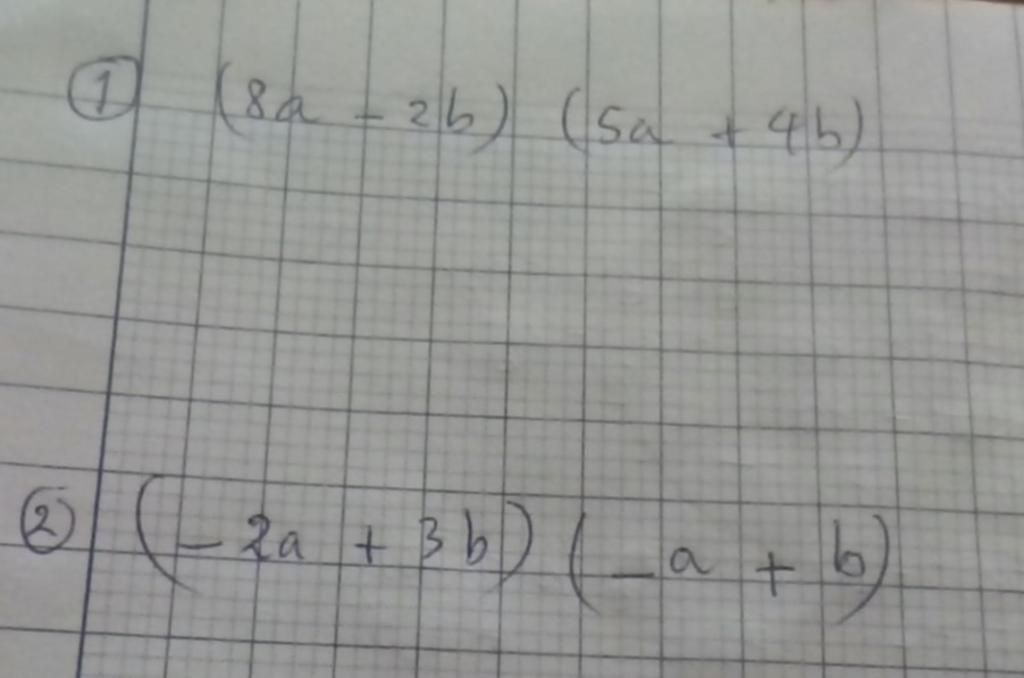 ① (8a - 2b) (5a + 4b)
② (- 2a + 3b) (- a + b)